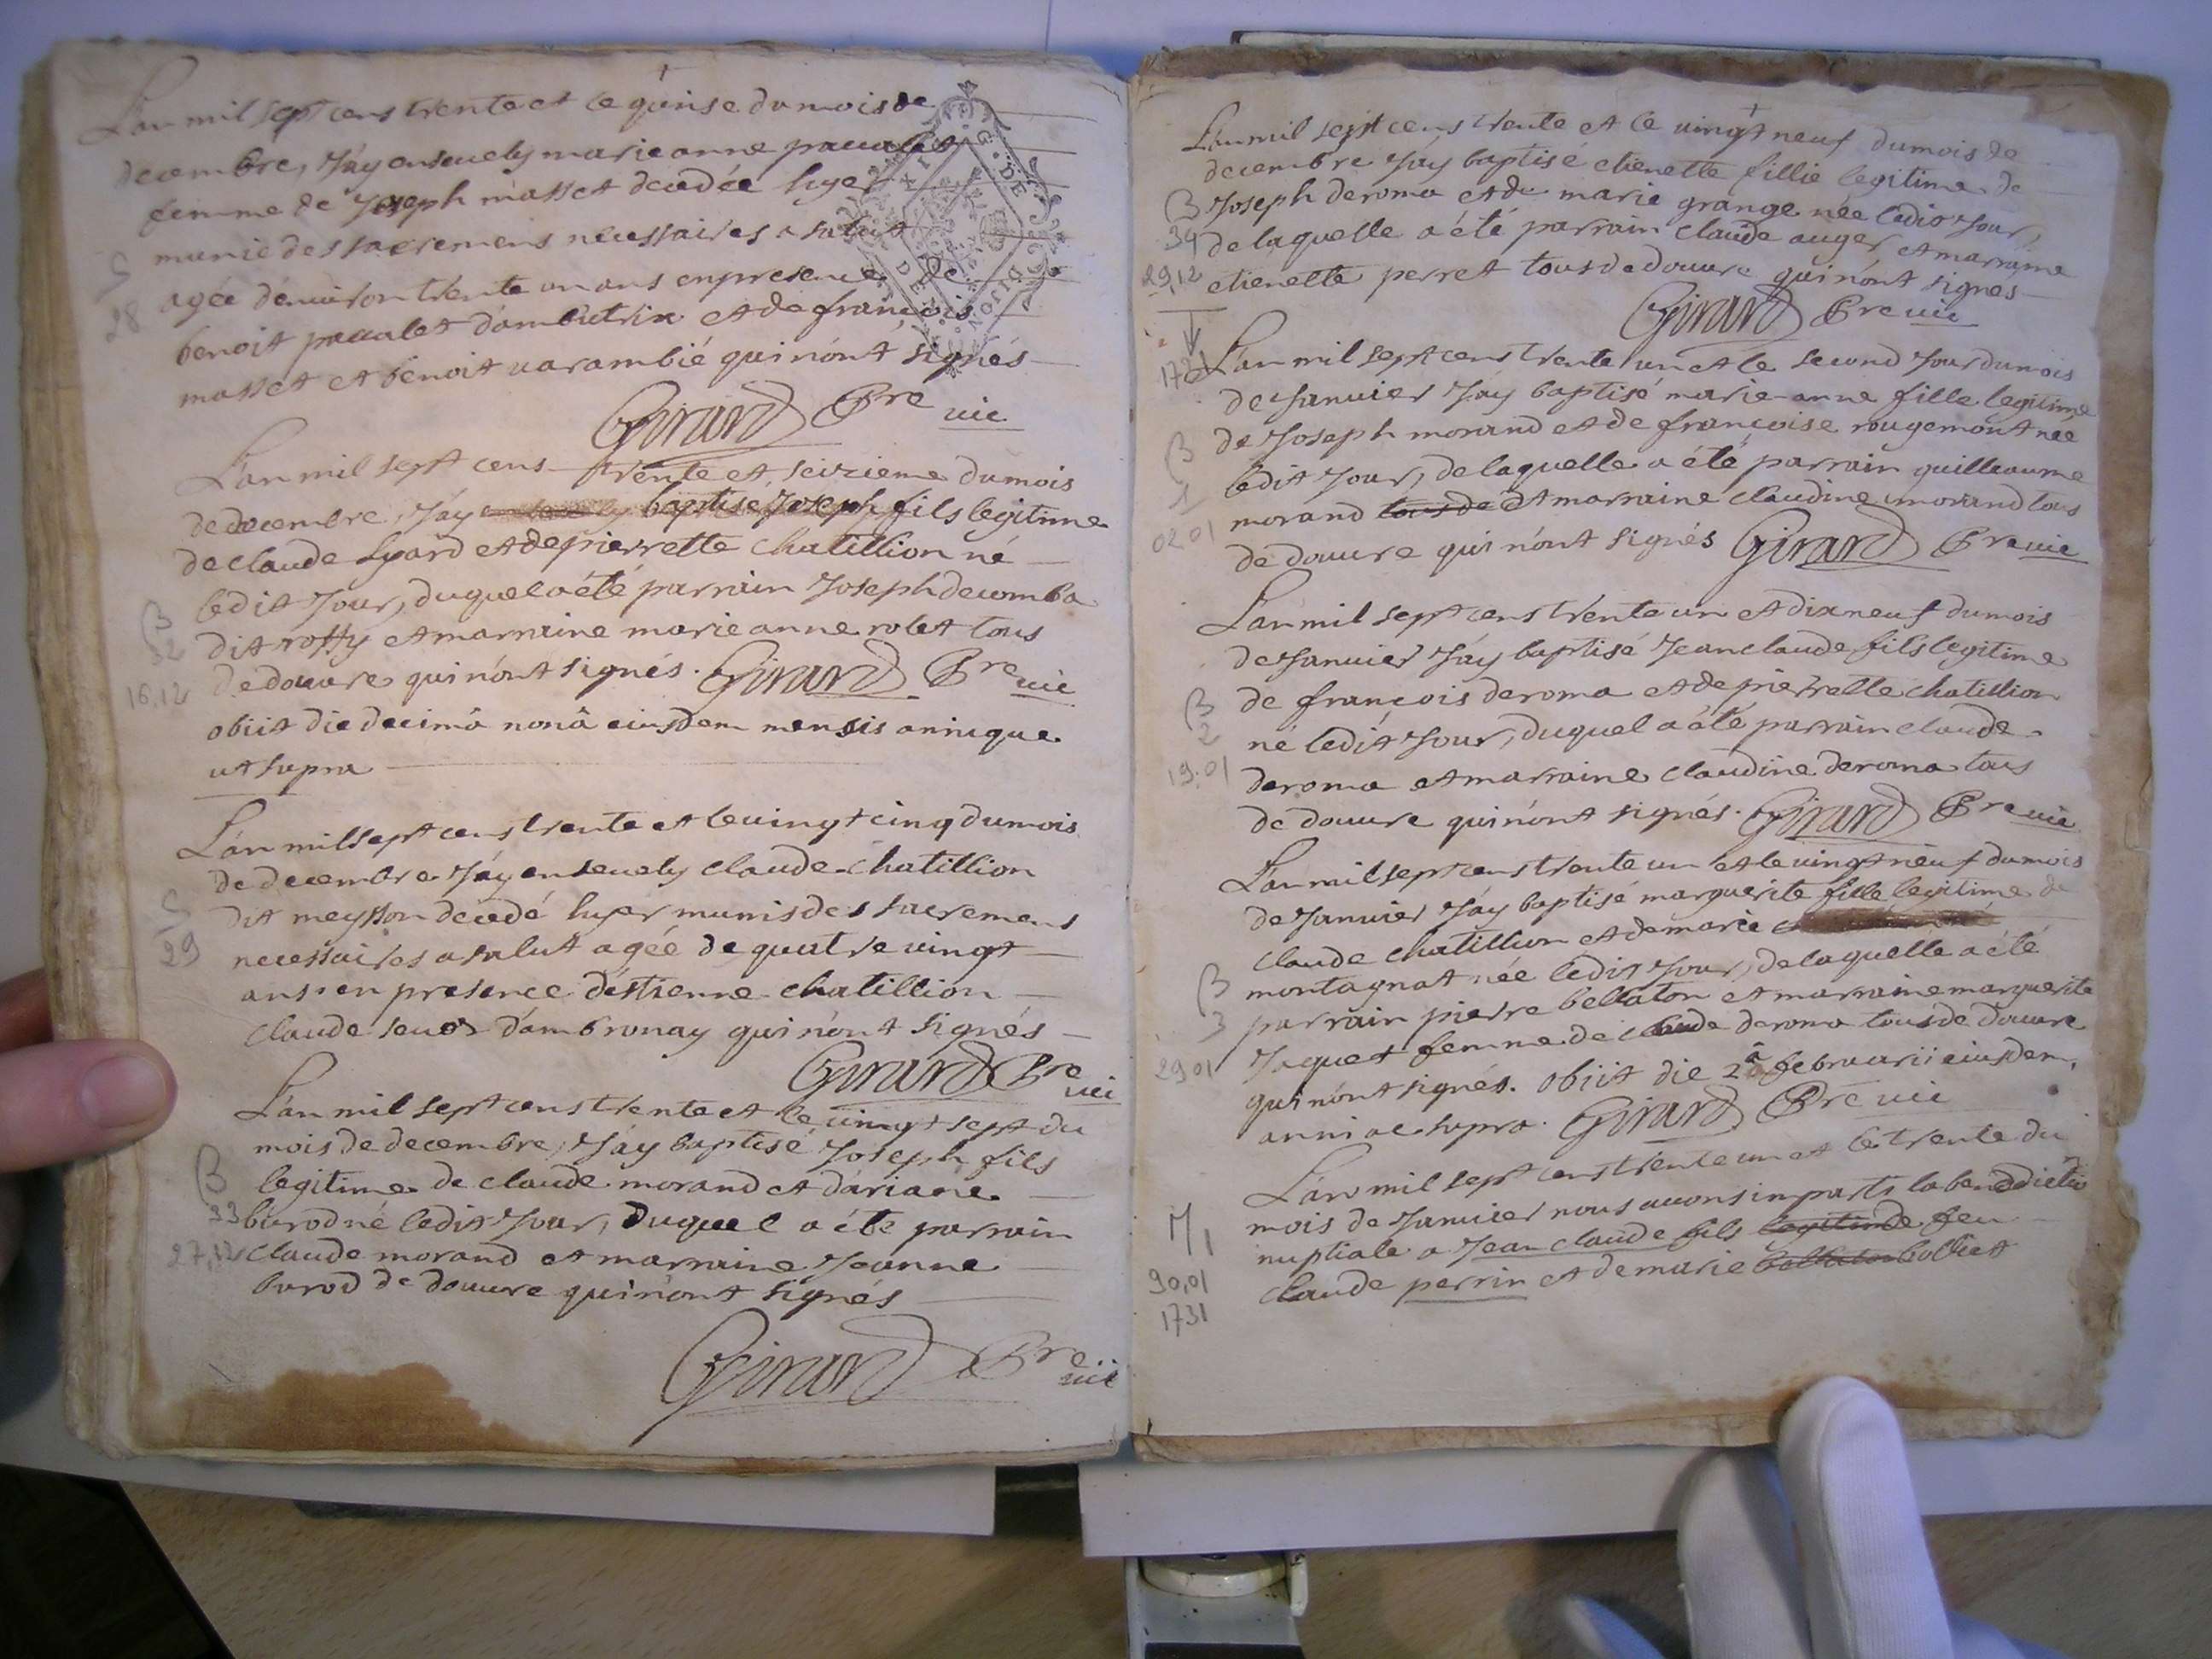 L'an mil sept cens trente et le quinse du mois de
decembre, J'ay ensevely marie anne pauualet
femme de Joseph masset decedée hyer
munie des sacremens necessaires a salut
agée d'environ trente un ans en presence de
benoit pauualet d'ambutrix et de françois
masset et benoit varambié qui n'ont signés
Girard Pre vic
S
28
L'an mil sept cens trente et seizieme du mois
de decembre, J'ay baptisé Joseph fils legitime
de claude lyard et de pierrette chatillion né
ledit Jour, duquel a été parrain Joseph decomba
dit rossy et marraine marie anne rolet tous
de douvre qui n'ont signés. Girard Pre vic
B
32
16.12
obiit die decimâ nonâ eiusdem mensis annique
ut supra
L'an mil sept cens trente et le vingt cinq du mois
de decembre J'ay ensevely claude chatillion
dit meysson decedé hyer munis des sacremens
necessaires a salut agée de quatre vingt
ans en presence d'estienne chatillion
claude d'ambronay qui n'ont signés
Girard Pre vic
S
29
L'an mil sept cens trente et le vingt sept du
mois de decembre, J'ay baptisé Joseph fils
legitime de claude morand et d'ariane
burod né ledit Jour, Duquel a été parrain
claude morand et marraine Jeanne
burod de douvre qui n'ont signés
Girard Pre vic
B
33
27.12
G. DE
DIJON
L'an mil sept cens trente et le vingt neuf du mois de
decembre J'ay baptisé etienette fillie legitime de
Joseph deroma et de marie grange née ledit Jour,
de laquelle a été parrain claude auger et marraine
etienette perret tous de douvre qui n'ont signes
Girard Pre vic
B
34
29.12
1731
L'an mil sept cens trente un et le second Jour du mois
de Janvier J'ay baptisé marie-anne fille legitime
de Joseph morand et de françoise rougemont née
ledit Jour, de laquelle a été parrain guilleaume
morand tous de et marraine claudine morand tous
de douvre qui n'ont signés Girard Pre vic
B
1
02.01
L'an mil sept cens trente un et dix neuf du mois
de Janvier J'ay baptisé Jean claude fils legitime
de françois deroma et de pierrette chatillion
né ledit Jour, duquel a été parrain claude
deroma et marraine claudine deroma tous
de douvre qui n'ont signés. Girard Pre vic
B
2
19.01
L'an mil sept cens trente un et le vingt neuf du mois
de Janvier J'ay baptisé marguerite fille legitime de
claude chatillion et de marie
montagnat née ledit Jour, de laquelle a été
parrain pierre bellaton et marraine marguerite
Jaquet femme de claude deroma tous de douvre
qui n'ont signés. obiit die 2â februarii eiusdem,
anni ac supra. Girard Pre vic
B
3
29.01
L'an mil sept cens trente un et le trente du
mois de Janvier nous avons imparti la benediction
nuptiale a Jean claude fils legitime de feu
claude perrin et de marie bolliet
M
1
30.01
1731